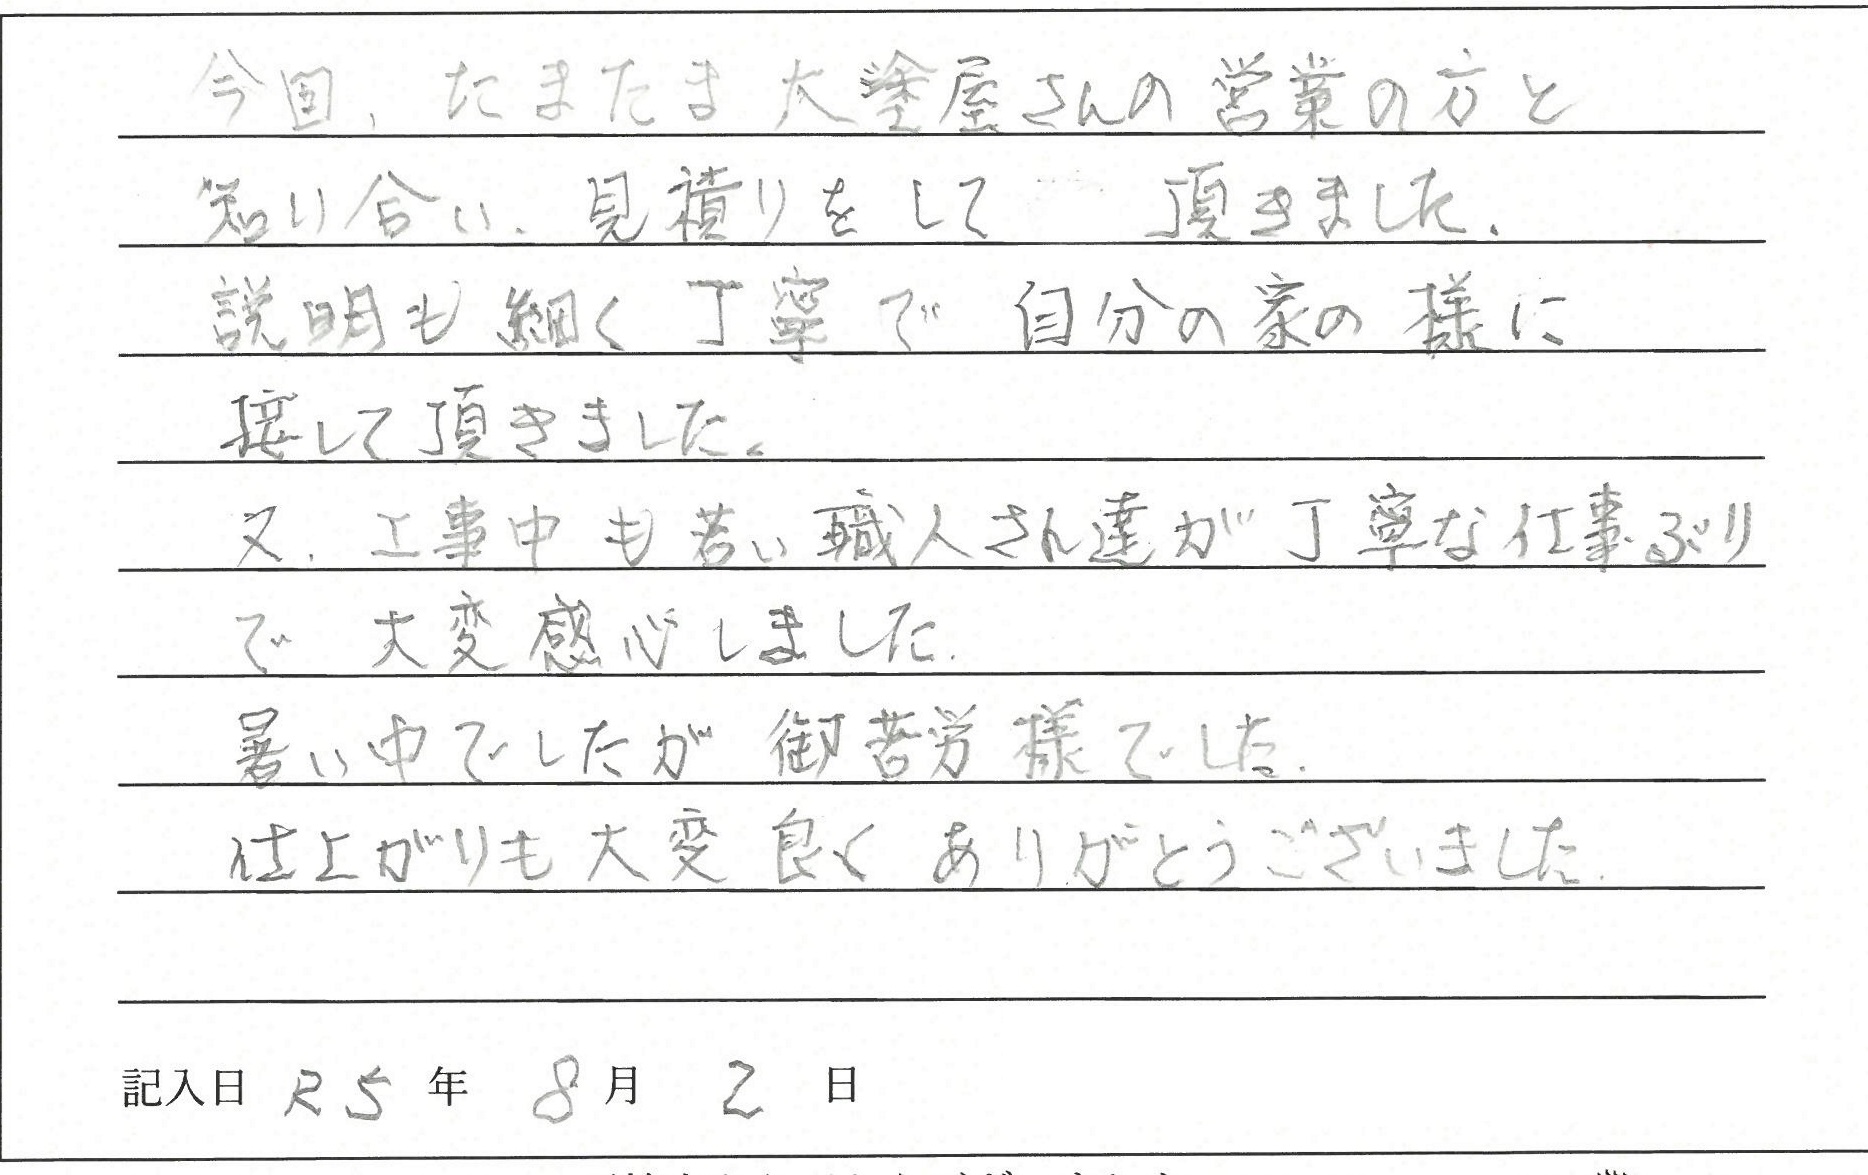 今回、たまたま大塗屋さんの営業の方と
知り合い、見積りをして 頂きました。
説明も細く丁寧で 自分の家の様に
接して頂きました。
又、工事中も若い職人さん達が丁寧な仕事ぶり
で 大変感心しました。
暑い中でしたが 御苦労様でした。
仕上がりも大変良く ありがとうございました。
記入日 R5 年 8 月 2 日